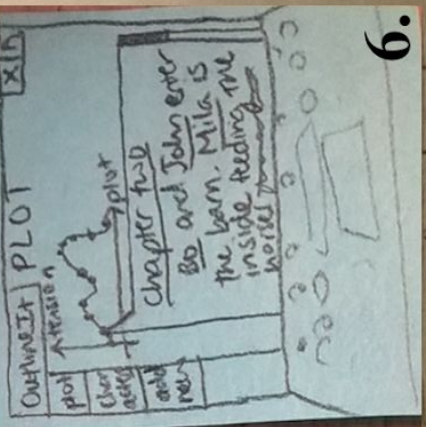 OutlineIt PLOT X I n
plot
char
acter
add
new
tension
plot
Chapter two
Bo and John enter
the barn. Mila is
inside feeding the
horses
6.